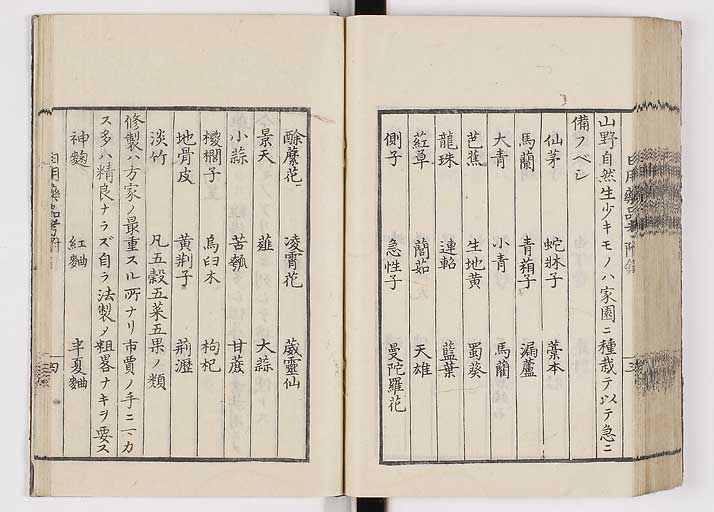 山野自然生少キモノハ家園ニ種栽テ以テ急ニ
備フベシ
仙茅 蛇牀子 藁本
馬蘭 青葙子 漏蘆
大青 小青 馬藺
芭蕉 生地黄 蜀葵
龍珠 連軺 藍葉
葒草 䕡茹 天雄
側子 急性子 曼陀羅花
酴醾花 凌霄花 葳靈仙
景天 薤 大蒜
小蒜 苦瓠 甘蔗
椶櫚子 烏臼木 枸杞
地骨皮 黄荆子 荊瀝
淡竹 凡五穀五菜五果ノ類
修製ハ方家ノ最重スル所ナリ市賈ノ手ニ
ス多ハ精良ナラズ自ラ法製ノ粗畧ナキヲ要ス
神麴 紅麯 半夏麯
日用藥品考附
四